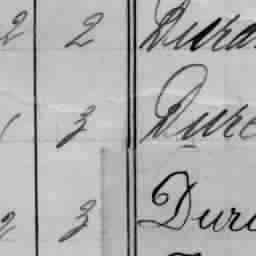 2 2 Dura
3 Dure
2 3 Duru